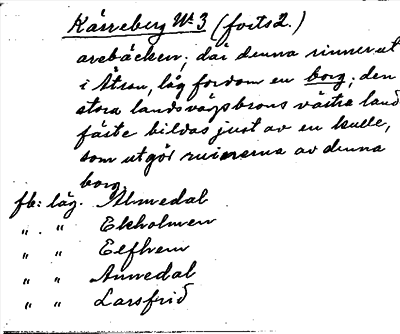 Kärreberg No 3 (forts 2.)
arebäcken; där denna rinner ut
i Ätran, låg fordom en borg; den
stora landsvägsbrons västra land
fäste bildas just av en kulle,
som utgör ruinerna av denna
borg.
fb: läg. Almedal
" . " Ekholmen
" " Elfhem
" " Annedal
" " Larsfrid